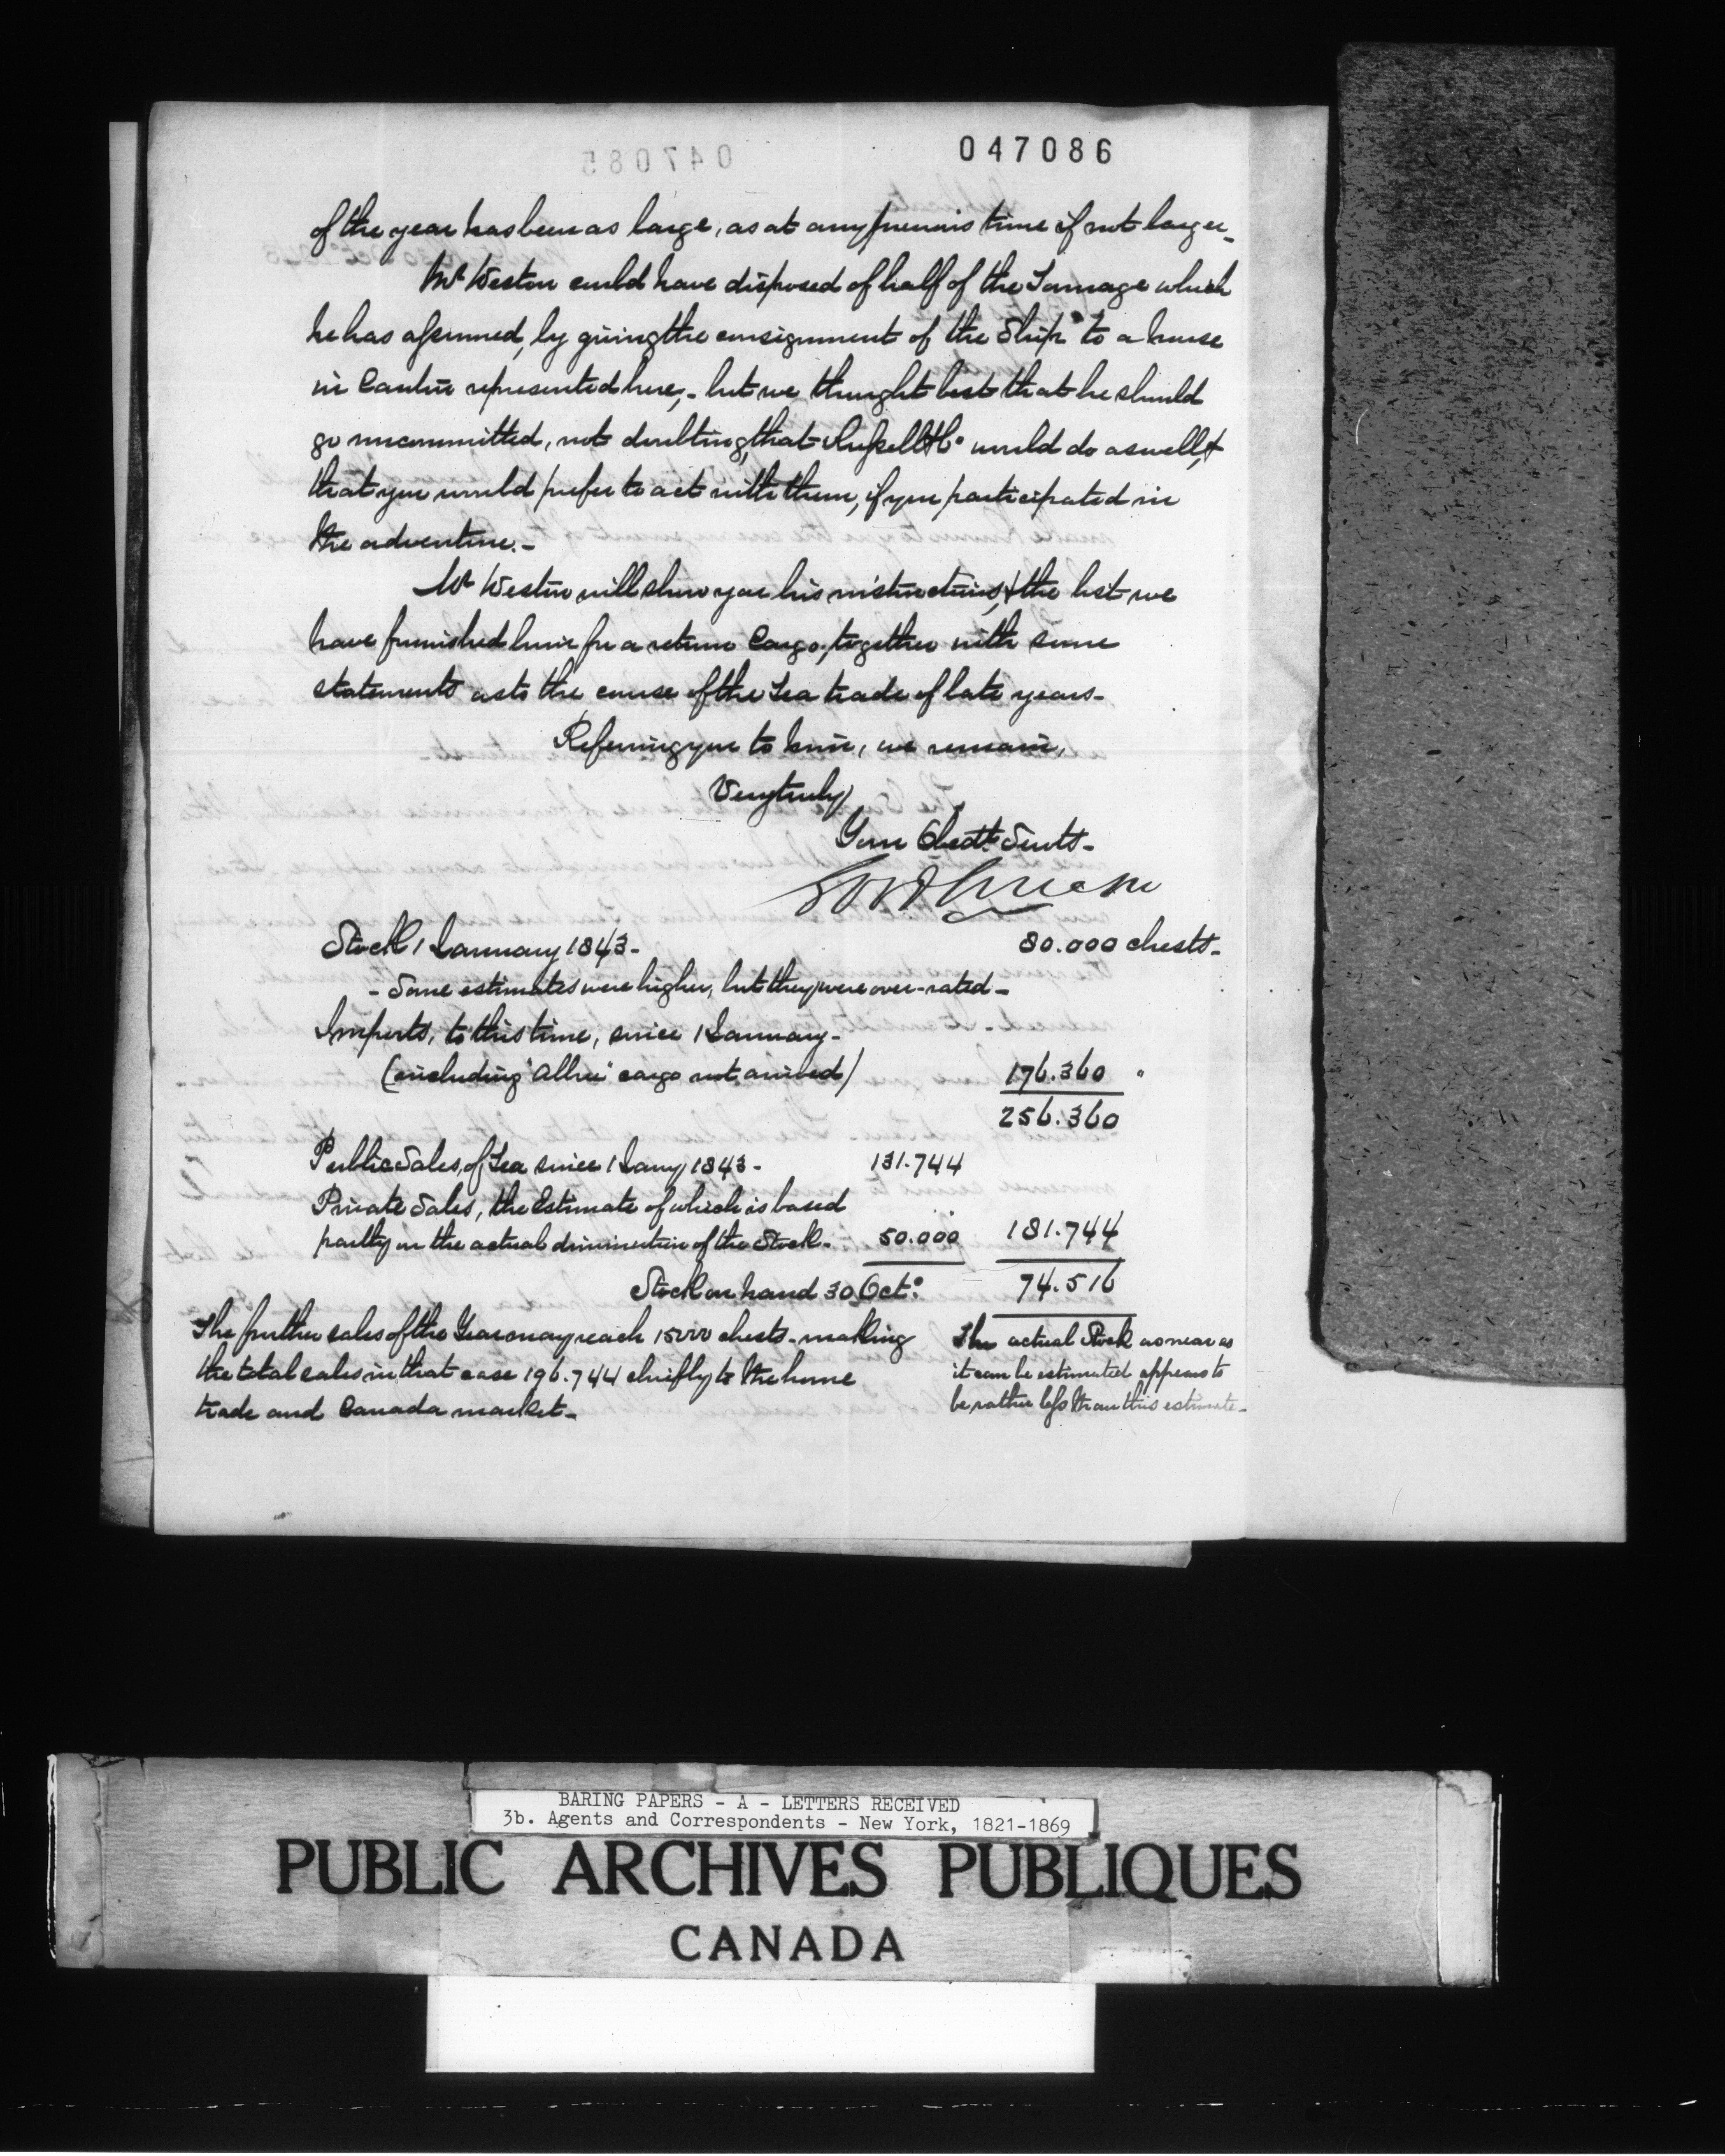 047086
of the year has been as large, as at any previous time if not larger_
Mr Weston could have disposed of half of the Tonnage which
he has assumed, by giving the consignment of the Ship to a house
in Canton represented here,- but we thought best that he should
go uncommitted, not doubting, that Russell & Co would do as well, &
that you would prefer to act with them, if you participated in
the adventure._
Mr Weston will show you his instructions, & the list we
have furnished him for a return Cargo, together with some
statements as to the course of the Tea trade of late years_
Referring you to him, we remain,
Very truly
Your Obedt. Servts_
Stock 1 January 1843_ 80.000 chests_
- Some estimates were higher, but they were over-rated_
Imports, to this time, since 1 January_
(including "Albion" cargo not arrived) 176.360 "
256.360
Public Sales, of Tea since 1 Jany 1843_ 131.744
Private Sales, the Estimate of which is based
partly on the actual diminution of the Stock_ 50.000 181.744
Stock on hand 30 Octo: 74.616
The further sales of the Year may reach 15000 chests_ making
the total sales in that case 196.744 chiefly to the home
trade and Canada market_
The actual Stock as near as
it can be estimated appears to
be rather less than this estimate_
BARING PAPERS - A - LETTERS RECEIVED
3b. Agents and Correspondents - New York, 1821-1869
PUBLIC ARCHIVES PUBLIQUES
CANADA